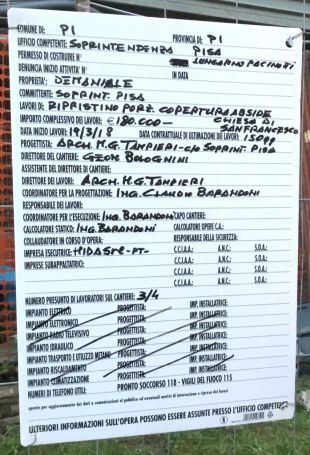 COMUNE DI: PI PROVINCIA DI: PI
UFFICIO COMPETENTE: SOPRINTENDENZA PISA
PERMESSO DI COSTRUIRE N° LUNGARNO PACINOTTI
DENUNCIA INIZIO ATTIVITÀ N° IN DATA
PROPRIETÀ: DEMANIALE
COMMITTENTE: SOPRINT. PISA
LAVORI DI: RIPRISTINO PORZ. COPERTURA ABSIDE
IMPORTO COMPLESSIVO DEI LAVORI: €180.000- CHIESA DI SANFRANCESCO
DATA INIZIO LAVORI: 19/3/18 DATA CONTRATTUALE DI ULTIMAZIONE DEI LAVORI:
PROGETTISTA: ARCH. M.G. TAMPIERI - c/o SOPRINT. PISA
DIRETTORE DEL CANTIERE: GEOM. BOLOGNINI
ASSISTENTE DEL DIRETTORE DI CANTIERE:
DIRETTORE DEI LAVORI: ARCH. M.G. TAMPIERI
COORDINATORE PER LA PROGETTAZIONE: ING. CLAUDIO BARANDONI
RESPONSABILE DEI LAVORI:
COORDINATORE PER L'ESECUZIONE: ING. BARANDONI CAPO CANTIERE:
CALCOLATORE STATICO: ING. BARANDONI CALCOLATORE OPERE C.A.:
COLLAUDATORE IN CORSO D'OPERA: RESPONSABILE DELLA SICUREZZA:
IMPRESA ESECUTRICE: HIDASrl -PT- C.C.I.A.A.: A.N.C.: S.O.A.:
IMPRESE SUBAPPALTATRICE: C.C.I.A.A.: A.N.C.: S.O.A.:
C.C.I.A.A.: A.N.C.: S.O.A.:
C.C.I.A.A.: A.N.C.: S.O.A.:
C.C.I.A.A.: A.N.C.: S.O.A.:
NUMERO PRESUNTO DI LAVORATORI SUL CANTIERE: 3/4
IMPIANTO ELETTRICO PROGETTISTA: IMP. INSTALLATRICE:
IMPIANTO ELETTRONICO PROGETTISTA: IMP. INSTALLATRICE:
IMPIANTO RADIO TELEVISIVO PROGETTISTA: IMP. INSTALLATRICE:
IMPIANTO IDRAULICO PROGETTISTA: IMP. INSTALLATRICE:
IMPIANTO TRASPORTO E UTILIZZO METANO PROGETTISTA: IMP. INSTALLATRICE:
IMPIANTO RISCALDAMENTO PROGETTISTA: IMP. INSTALLATRICE:
IMPIANTO CLIMATIZZAZIONE PROGETTISTA: IMP. INSTALLATRICE:
NUMERI DI TELEFONO UTILI: PRONTO SOCCORSO 118 - VIGILI DEL FUOCO 115
spazio per aggiornamento dei dati e comunicazioni al pubblico ed eventuali motivi di interruzione o ripresa dei lavori
ULTERIORI INFORMAZIONI SULL'OPERA POSSONO ESSERE ASSUNTE PRESSO L'UFFICIO COMPETENTE